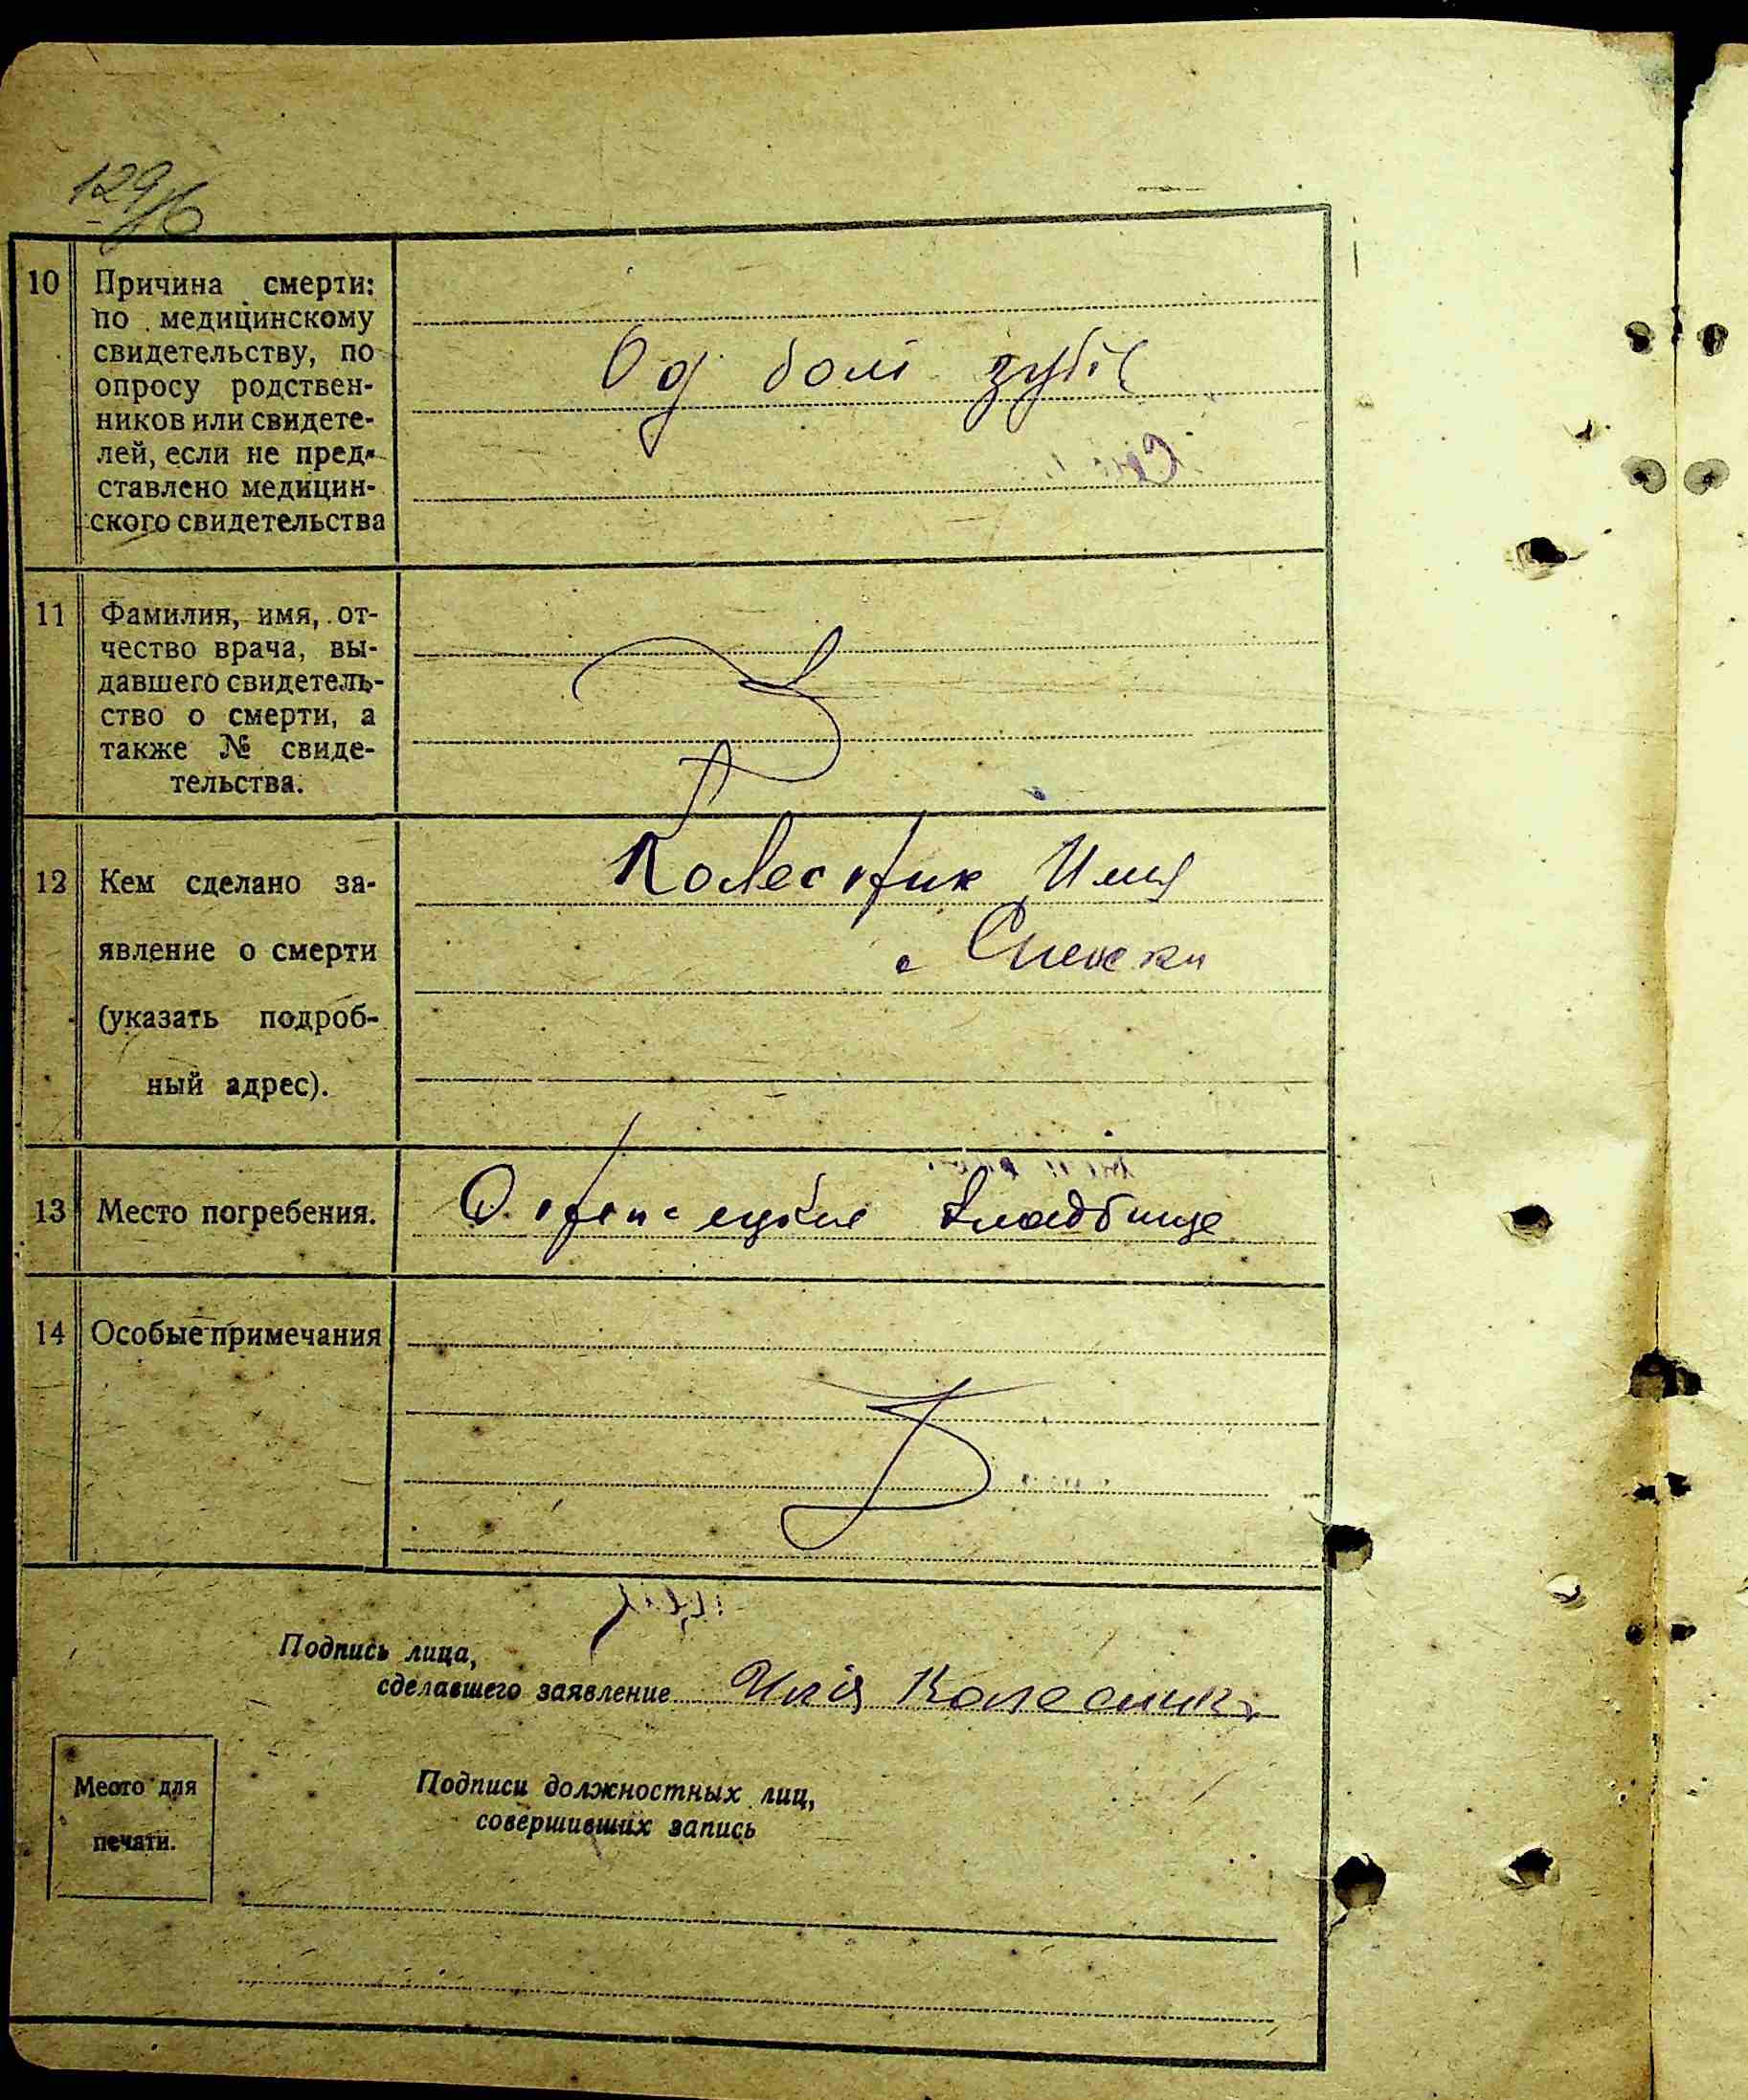 10 Причина смерти:
по медицинскому
свидетельству, по
опросу родствен-
ников или свидете-
лей, если не пред-
ставлено медицин-
ского свидетельства
Од болі зубів
11 Фамилия, имя, от-
чество врача, вы-
давшего свидетель-
ство о смерти, а
также № свиде-
тельства.
12 Кем сделано за-
явление о смерти
(указать подроб-
ный адрес).
Колесник Илия
с
13 Место погребения.
кладбище
14 Особые примечания
Подпись лица,
сделавшего заявление Илія Колесник
Место для
печати.
Подписи должностных лиц,
совершивших запись